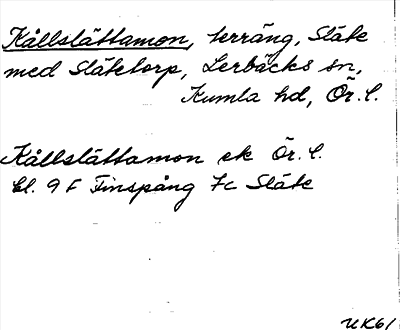 Kållslättamon, terräng, Släte
med Slätetorp, Lerbäcks sn,
Kumla hd, Ör. l.
Kållslättamon ek Ör. l.
bl. 9 F Finspång 7c Släte
UK61